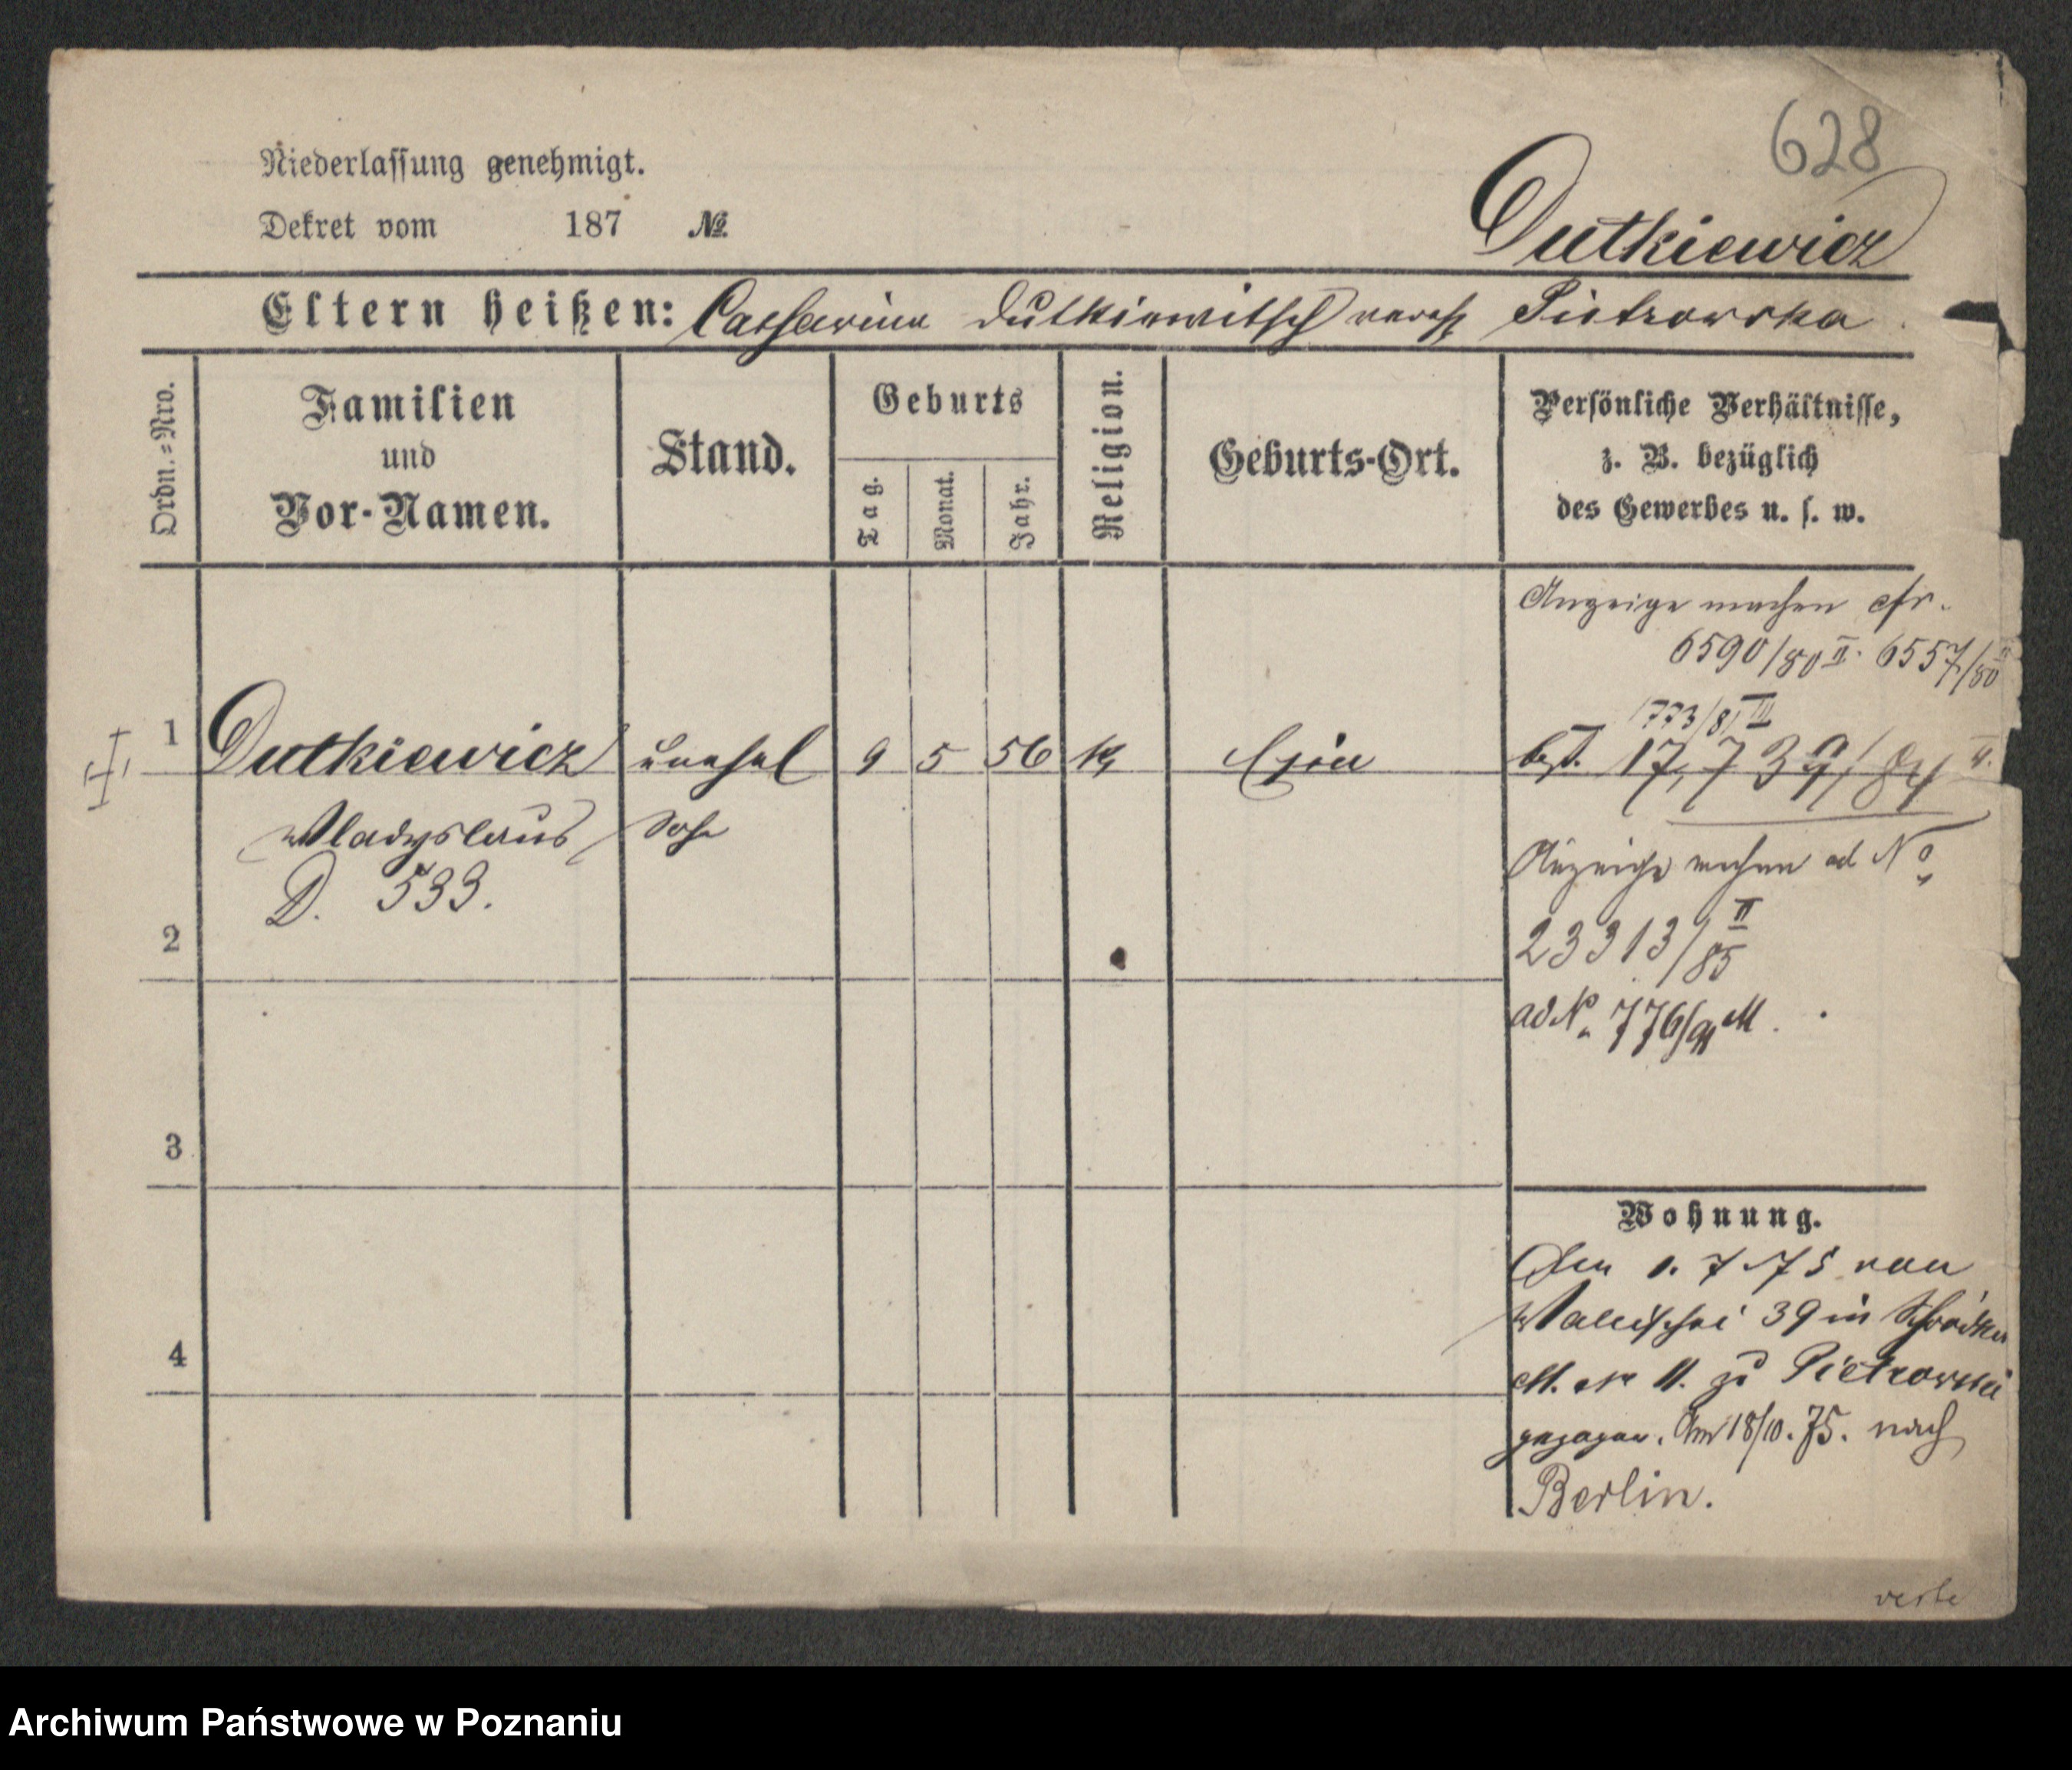 628
Niederlassung genehmigt.
Dekret vom 187 №
Dutkiewicz
Eltern heißen: Catharina Dutkiewitsch vereh. Pietrowska
Ordn.-Nro.
Familien
und
Vor-Namen.
Stand.
Geburts
Tag.
Monat.
Jahr.
Religion.
Geburts-Ort.
Persönliche Verhältnisse,
z. B. bezüglich
des Gewerbes u. s. w.
Anzeige machen cfr.
6590/80 II. 6557/80 II
1773/81 III
1 Dutkiewicz unehel 9 5 56 k. Exin 17,739/84 II.
Wladyslaus Sohn
D. 533.
Anzeige machen ad No
2
23313/85 II
ad N. 776/91 M.
3
Wohnung.
Den 1. 7. 75 von
Wallischei 39 in Schrodka
M. No 11. zu Pietrowski
gezogen. Am 18/10. 75. nach
4
Berlin.
verte
Archiwum Państwowe w Poznaniu